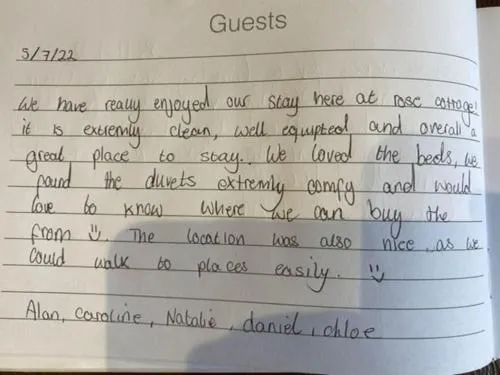 Guests
5/7/22
We have really enjoyed our stay here at rose cottage!
it is extremly clean, well equipted and overall a
great place to stay. We loved the beds, we
found the duvets extremly comfy and would
love to know where we can buy the
from :). The location was also nice as we
could walk to places easily. :)
Alan, caroline, Natalie, daniel, chloe